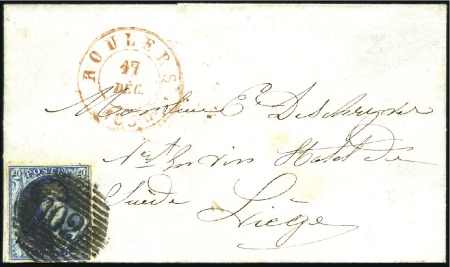 ROULERS
17
DEC.
Monsieur E Deschryver
Hotel de
Suède
Liège
20 POSTES 20
102